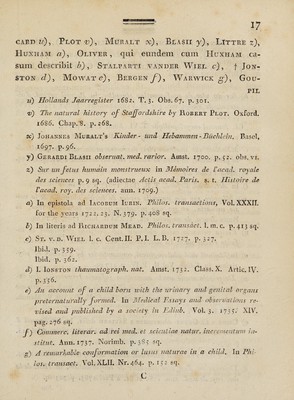 17
CARD u), PLOT v), MURALT x), BLASII y), LITTRE z),
HUXHAM a), OLIVER, qui eundem cum HUXHAM ca-
sum describit b), STALPARTI VANDER WIEL c), † JON-
STON d), MOWAT e), BERGEN f), WARWICK g), GOU-
PIL
u) Hollands Jaarregister 1682. T. 3. Obs. 67. p. 301.
v) The natural history of Staffordshire by ROBERT PLOT. Oxford.
1686. Chap. 8. p. 268.
x) JOHANNES MURALT's Kinder- und Hebammen-Büchlein. Basel,
1697. p. 96.
y) GERARDI BLASII observat. med. rarior. Amst. 1700. p. 52. obs. VI.
z) Sur un fetus humain monstrueux in Mémoires de l'acad. royale
des sciences p. 9 sq. (adiectae actis acad. Paris. s. t. Histoire de
l'acad. roy. des sciences. ann. 1709.)
a) In epistola ad IACOBUM IURIN. Philos. transactions, Vol. XXXII.
for the years 1722. 23. N. 379. p. 408 sq.
b) In literis ad RICHARDUM MEAD. Philos. transact. l. m. c. p. 413 sq.
c) ST. V. D. WIEL l. c. Cent. II. P. I. L. B. 1727. p. 327.
Ibid. p. 359.
Ibid. p. 362.
d) I. IONSTON thaumatograph. nat. Amst. 1732. Class. X. Artic. IV.
p. 336.
e) An account of a child born with the urinary and genital organs
preternaturally formed. In Medical Essays and observations re-
vised and published by a society in Edinb. Vol. 3. 1735. XIV.
pag. 276 sq.
f) Commerc. literar. ad rei med. et scientiae natur. incrementum in-
stitut. Ann. 1737. Norimb. p. 385 sq.
g) A remarkable conformation or lusus naturae in a child. In Phi-
los. transact. Vol. XLII. Nr. 464. p. 152 sq.
C